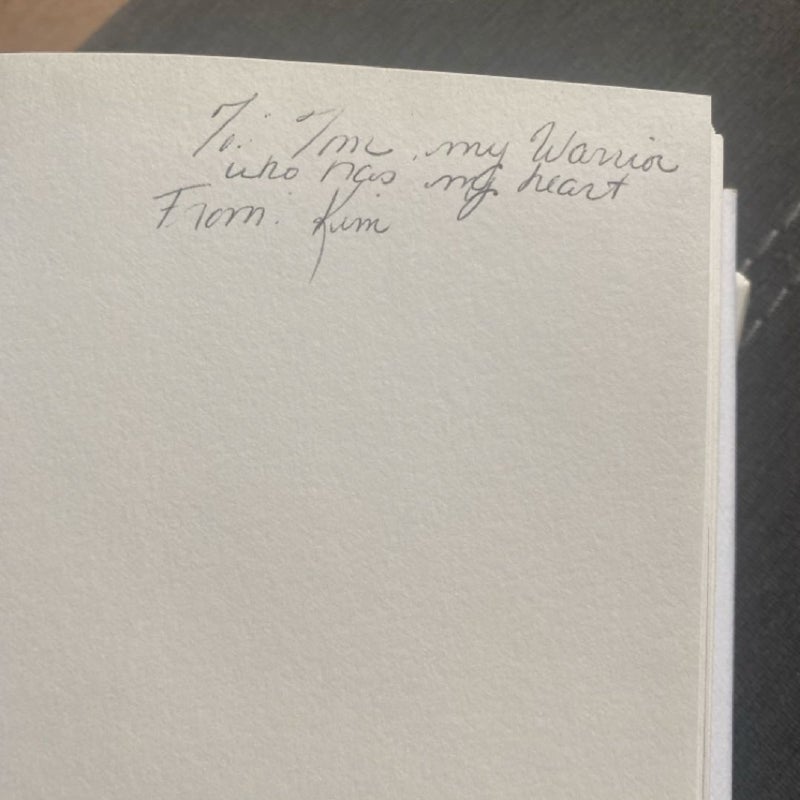 To: Tom, my Warrior
who has my heart
From: Kim